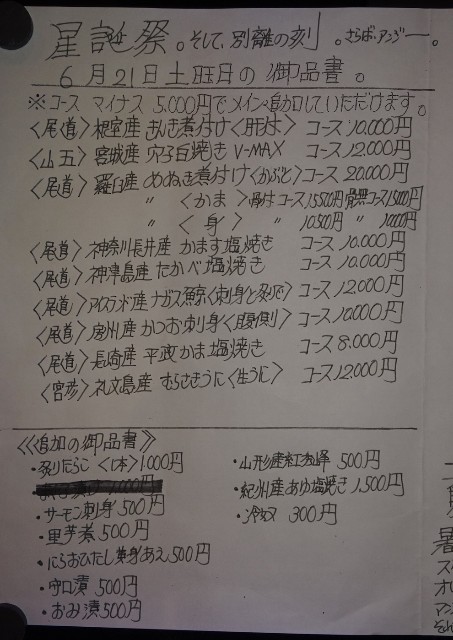 星誕祭。そして、別離の刻。さらば、アンジー。
6月21日土旺日の御品書。
※コース マイナス 5,000円でメイン追加していただけます。
〈尾道〉根室産 きんき煮付け〈肝付〉 コース 10,000円
〈山五〉宮城産 穴子白焼き V-MAX コース 12,000円
〈尾道〉羅臼産 めぬき煮付け〈かぶと〉コース 20,000円
〃 〈かま〉骨付コース15,500円 骨無コース
〃 〈身〉 〃 10,500円 〃
〈尾道〉神奈川長井産 かます塩焼き コース 10,000円
〈尾道〉神津島産 たかべ塩焼き コース 10,000円
〈尾道〉アイスランド産 ナガス鯨〈刺身と炙りで〉コース 12,000円
〈尾道〉房州産 かつお刺身〈腹側〉 コース 10,000円
〈尾道〉長崎産 平政かま塩焼き コース 8,000円
〈宮彦〉礼文島産 むらさきうに〈生うに〉 コース 12,000円
《追加の御品書》
・炙りたらこ〈1本〉1,000円
・サーモン刺身 500円
・里芋煮 500円
・にらおひたし黄身あえ 500円
・守口漬 500円
・おみ漬 500円
・山形産紅秀峰 500円
・紀州産あゆ塩焼き 1,500円
・冷奴 300円
暑